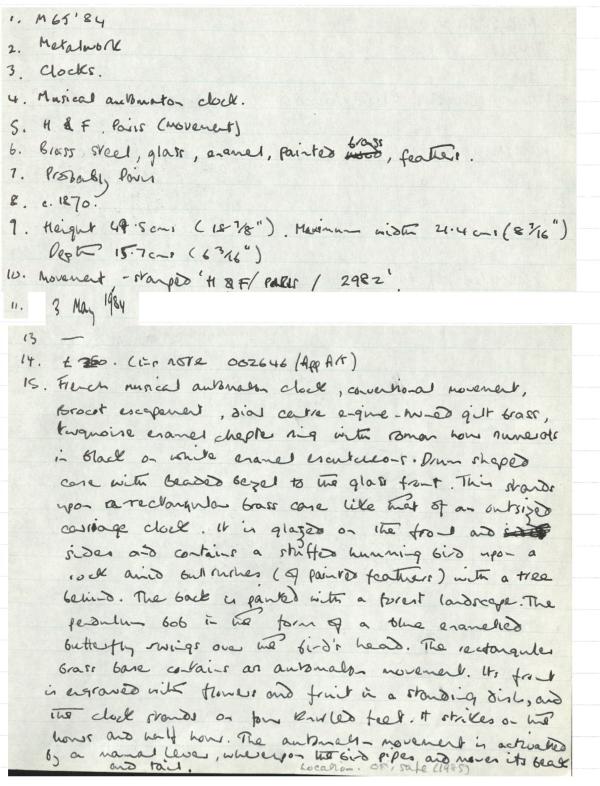 1. M65'84
2. Metalwork
3. Clocks.
4. Musical automaton clock.
5. H & F. Paris (movement)
6. Brass, steel, glass, enamel, painted brass, feathers.
7. Probably Paris
8. c. 1870.
9. Height 47.5cms (18⅞"). Maximum width 21.4cms (8 3/16")
Depth 15.7cms (6 3/16")
10. Movement - stamped 'H & F/ PARIS / 2982'.
11. 3 May 1984
13 —
14. £ (inc note 002646 / App Art)
15. French musical automaton clock, conventional movement,
Brocot escapement, dial centre engine-turned gilt brass,
turquoise enamel chapter ring with roman hour numerals
in black on white enamel escutcheons. Drum shaped
case with beaded bezel to the glass front. This stands
upon a rectangular brass case like that of an outsized
carriage clock. It is glazed on the front and
sides and contains a stuffed humming bird upon a
rock amid bulrushes (of painted feathers) with a tree
behind. The back is painted with a forest landscape. The
pendulum bob in the form of a blue enamelled
butterfly swings over the bird's head. The rectangular
brass base contains an automaton movement. Its front
is engraved with flowers and fruit in a standing dish, and
the clock stands on four knurled feet. It strikes on the
hours and half hours. The automaton movement is activated
by a manual lever, whereupon the bird pipes and moves its beak
and tail. Location. Of, safe (1985)